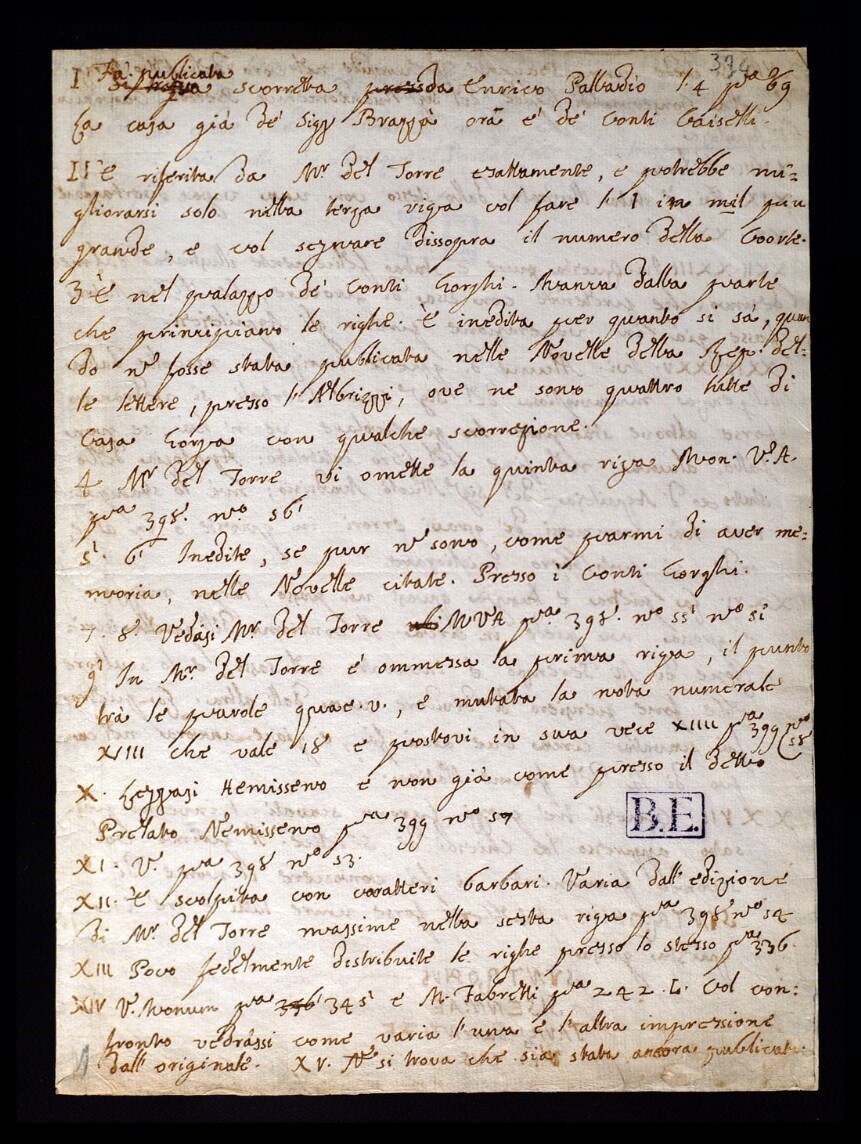 374
I Fa. publicata scorretta da Enrico Palladio l. 4 pa 69
La casa già de' Sigg Brazzà ora è de' Conti Caiselli.
II È riferita da Mr. del Torre esattamente, e potrebbe mi=
gliorarsi solo nella terza riga col fare l' I in mil piu
grande, e col segnare dissopra il numero della Coorte.
3 È nel palazzo de' Conti Gorghi. Manca dalla parte
che principiano le righe. È inedita per quanto si sà, quan
do nn fosse stata publicata nelle Novelle della Rep. del=
le lettere, presso l'Albrizzi, ove ne sono quattro tutte di
Casa Gorga con qualche scorrezione.
4 Mr. del Torre vi omette la quinta riga Mon. V. A.
pa 398. no. 56
5. 6 Inedite, se pur nn sono, come parmi di aver me=
moria, nelle Novelle citate. Presso i Conti Gorghi.
7. 8. Vedasi Mr. del Torre M V A pa. 398. no 55 no 51
9 In Mr. del Torre è ommessa la prima riga, il punto
trà le parole quae. v., e mutata la nota numerale
XVIII che vale 18 e postovi in sua vece XIIII pa 399 no 58
X. Leggasi Hemisseno e non già come presso il detto
Prelato Nemisseno pa 399 no 57
B.E.
XI. V. pa 398 no 53.
XII. È scolpita con caratteri barbari. Varia dall' edizione
di Mr. del Torre massime nella sesta riga pa 398 no 54
XIII Poco fedelmente distribuite le righe presso lo stesso pa 336.
XIV V. Monum pa 345 e M. Fabretti pa 242. L. Col con=
fronto vedrassi come varia l'una e l'altra impressione
dall' originale. XV. Nn si trova che sia stata ancora publicata.